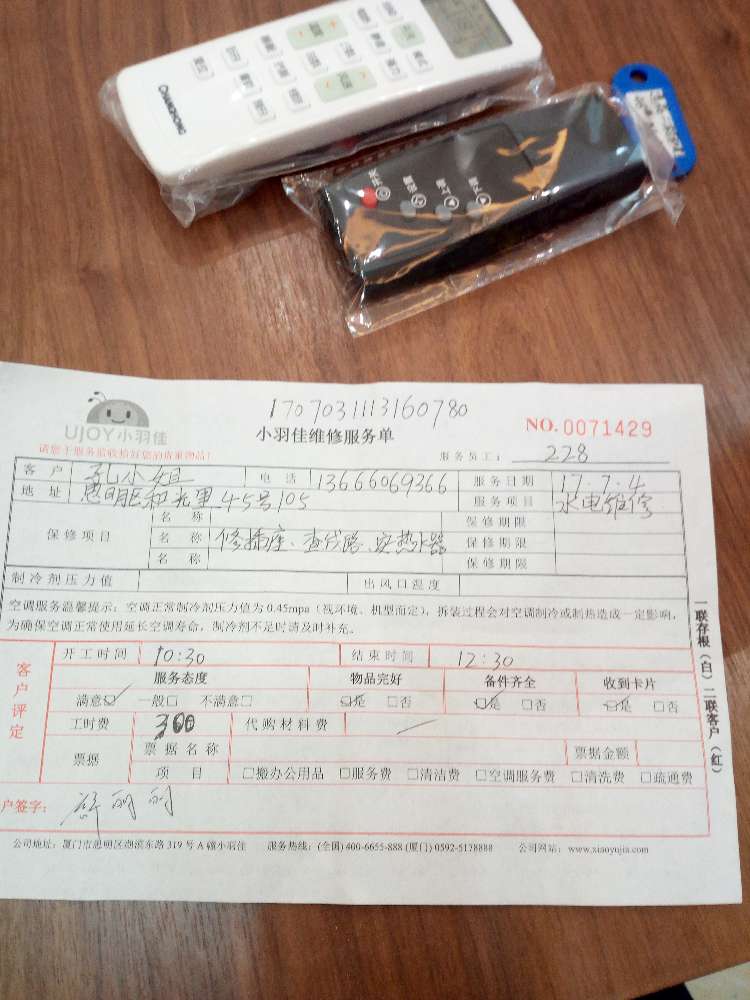 CHANGHONG
开关
设置
上调
下调
1707031113160780
UJOY小羽佳
小羽佳维修服务单
NO. 0071429
请您于服务前收拾好您的贵重物品!
服务员工: 228
客户 孔小姐 电话 13666069366 服务日期 17.7.4
地址 思明区和光里45号105 服务项目 水电维修
保修项目
名称 保修期限
名称 修插座、查线路、安热水器 保修期限
名称 保修期限
制冷剂压力值 出风口温度
空调服务温馨提示:空调正常制冷剂压力值为0.45mpa(视环境、机型而定),拆装过程会对空调制冷或制热造成一定影响,
为确保空调正常使用延长空调寿命,制冷剂不足时请及时补充。
客户评定
开工时间 10:30 结束时间 12:30
服务态度 物品完好 备件齐全 收到卡片
满意☑ 一般□ 不满意□ ☑是 □否 ☑是 □否 ☑是 □否
工时费 300 代购材料费 /
票据 票据名称 票据金额
项目 □搬办公用品 □服务费 □清洁费 □空调服务费 □清洗费 □疏通费
户签字:
一联存根(白)二联客户(红)
公司地址:厦门市思明区湖滨东路319号A幢小羽佳 服务热线:(全国)400-6655-888 (厦门) 0592-5128888 公司网站:www.xiaoyujia.com